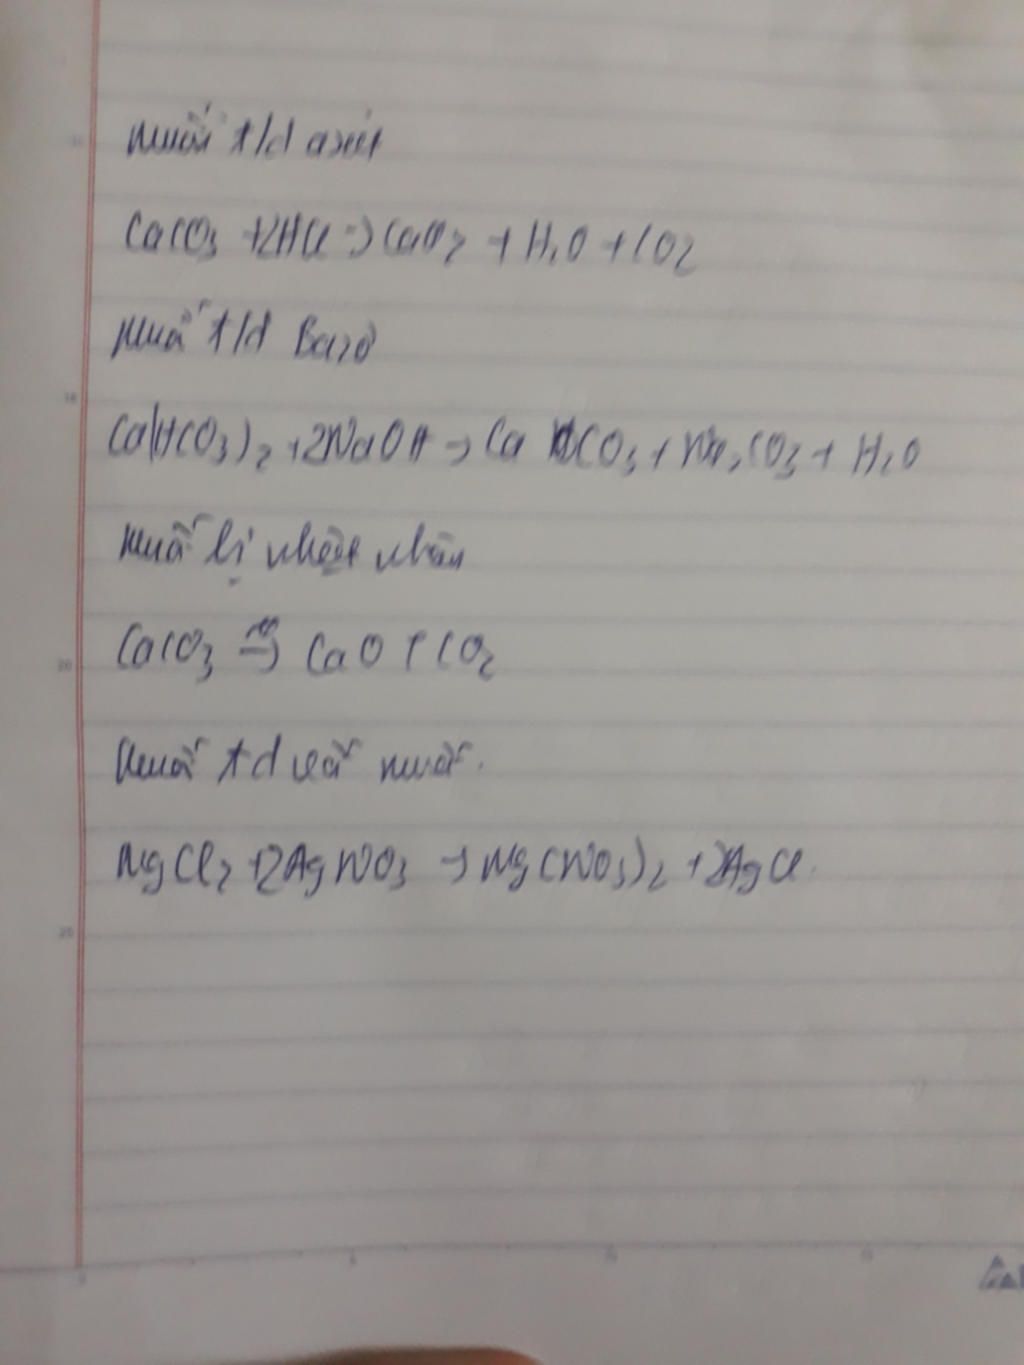 Muối t/d axit
CaCO3 + 2HCl → CaCl2 + H2O + CO2
Muối t/d Bazơ
Ca(HCO3)2 + 2NaOH → Ca CO3 + Na2CO3 + H2O
Muối bị nhiệt phân
CaCO3 → CaO + CO2
Muối td với muối.
MgCl2 + 2AgNO3 → Mg(NO3)2 + 2AgCl.